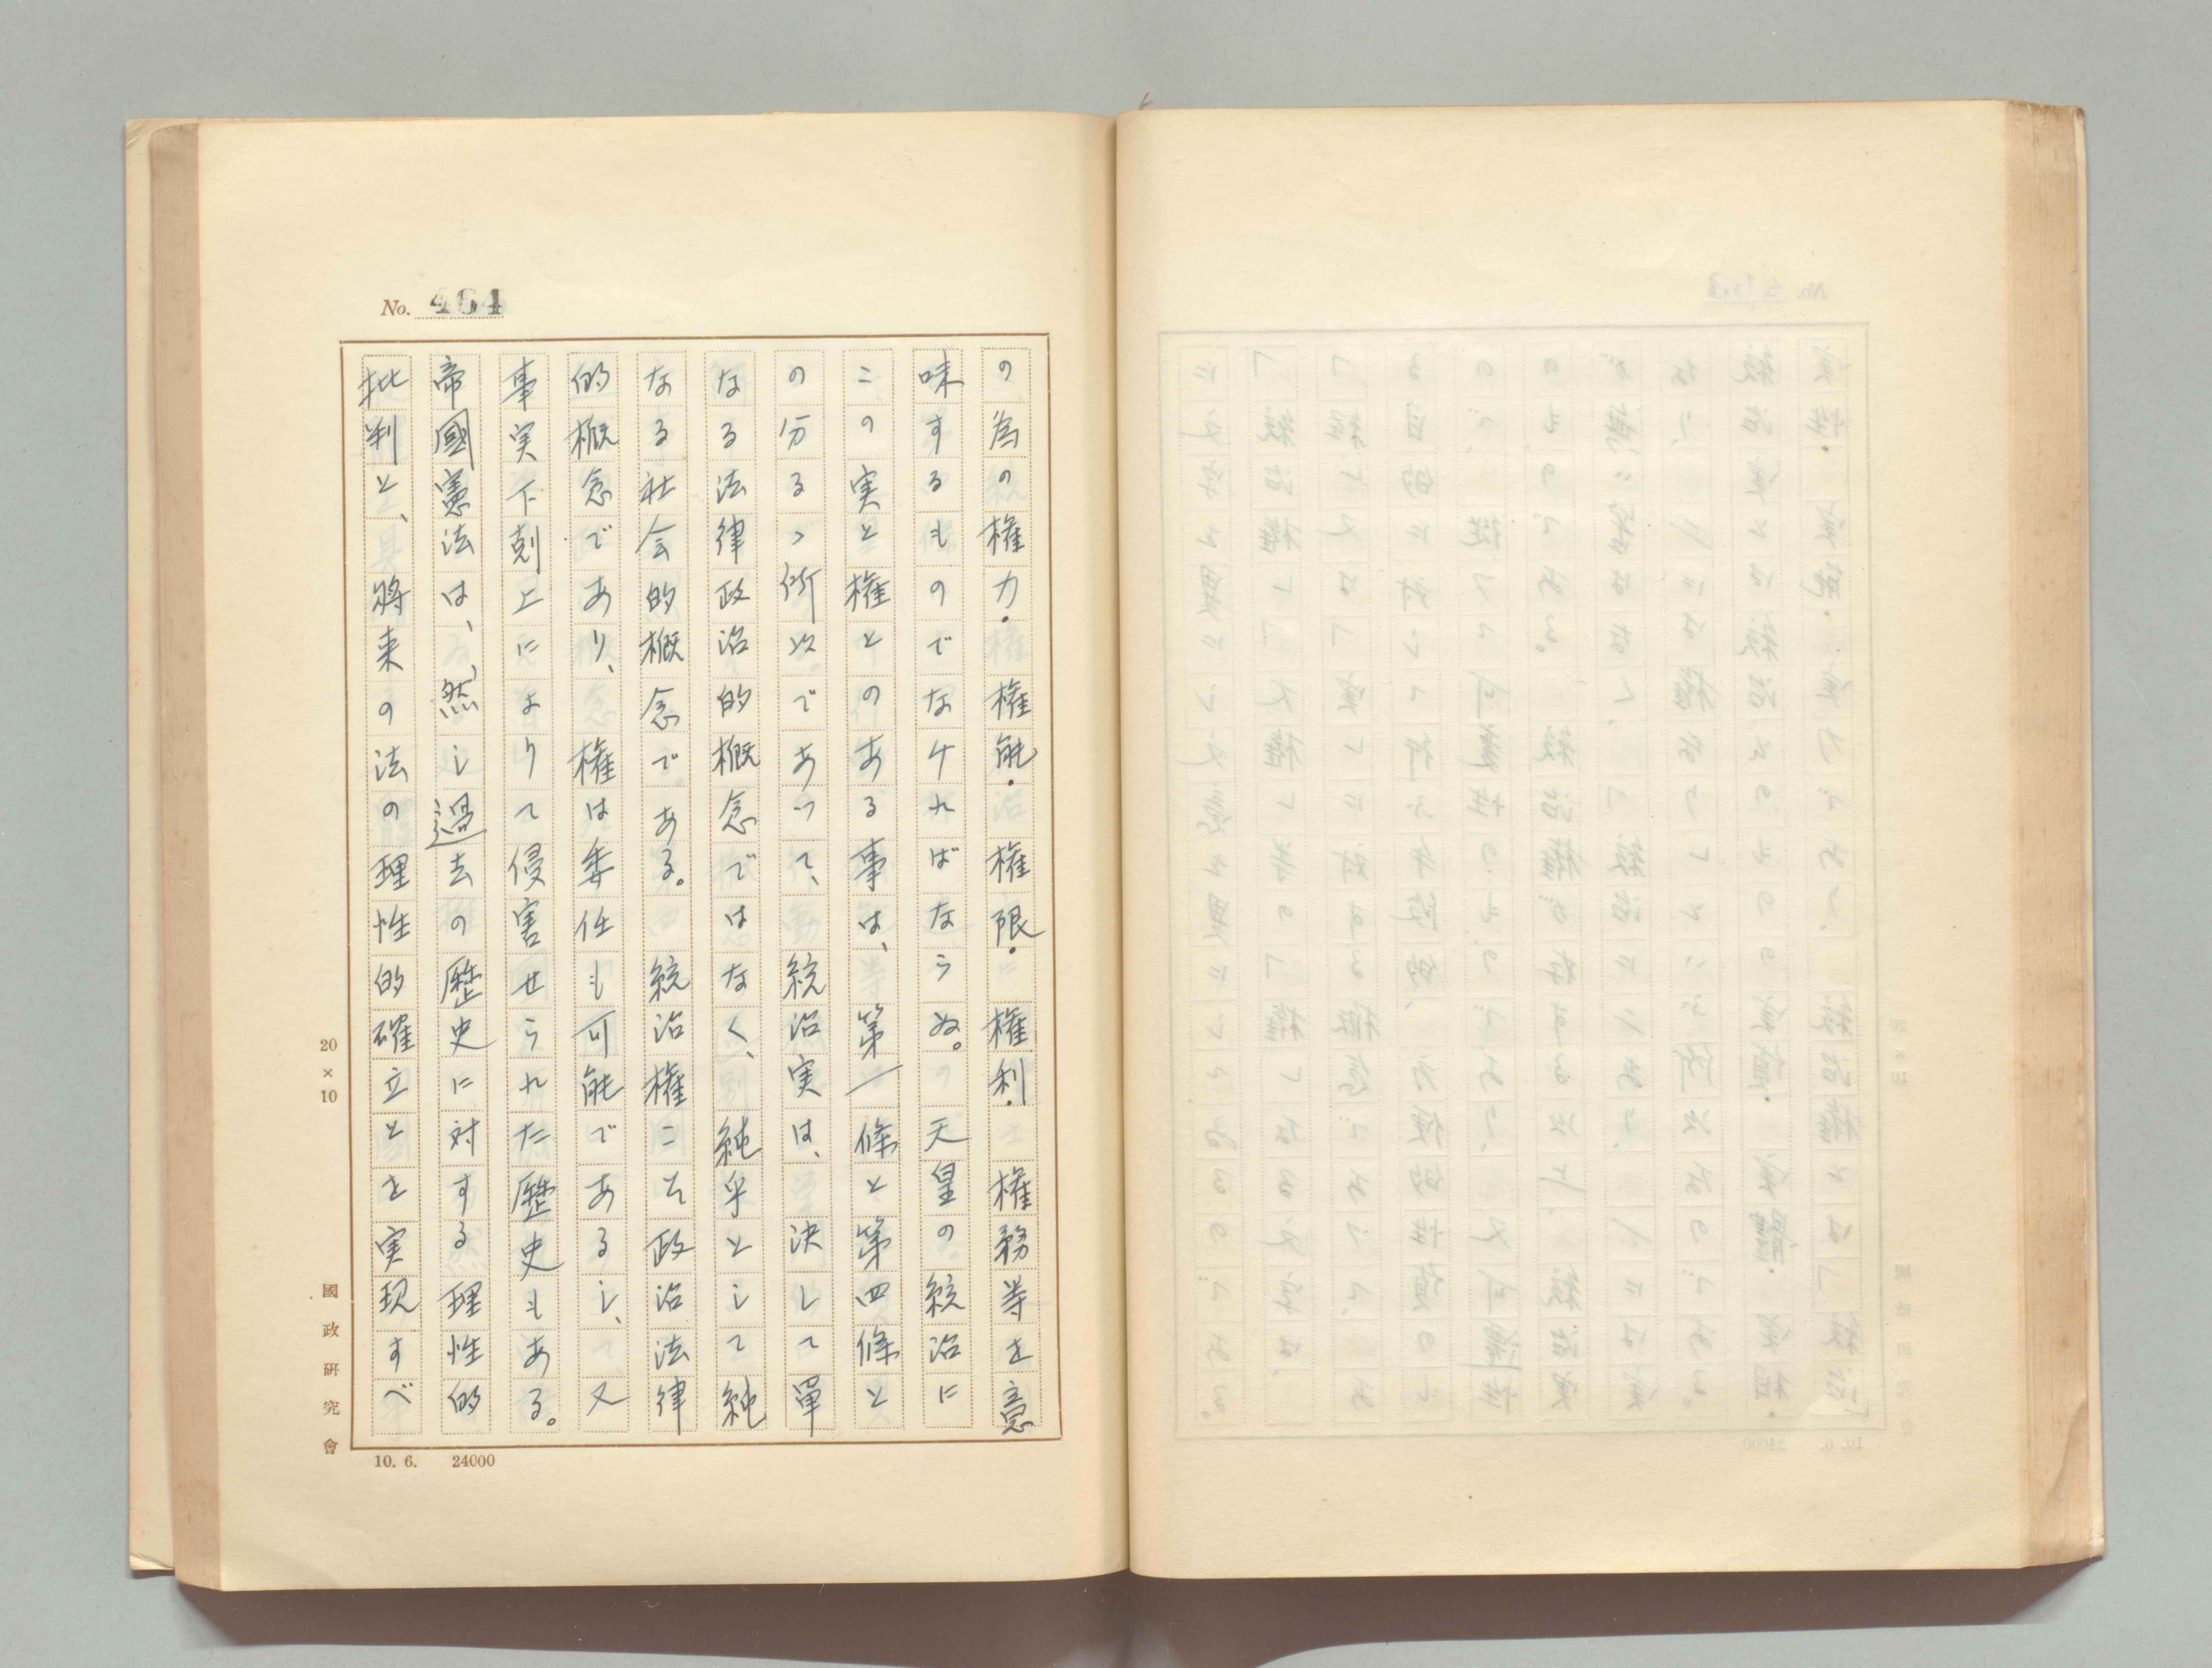 No. 464
の為の権力・権能・権限・権利・権務等を意
味するものでなければならぬ。天皇の統治に
この実と権とのある事は、第一條と第四條と
の分るゝ所以であつて、統治実は、決して單
なる法律政治的概念ではなく、純乎として純
なる社会的概念である。統治権こそ政治法律
的概念であり、権は委任も可能であるし、又
事実下剋上によりて侵害せられた歴史もある。
帝國憲法は、然し過去の歴史に対する理性的
批判と、將来の法の理性的確立とを実現すべ
20×10
國政研究會
10. 6. 24000